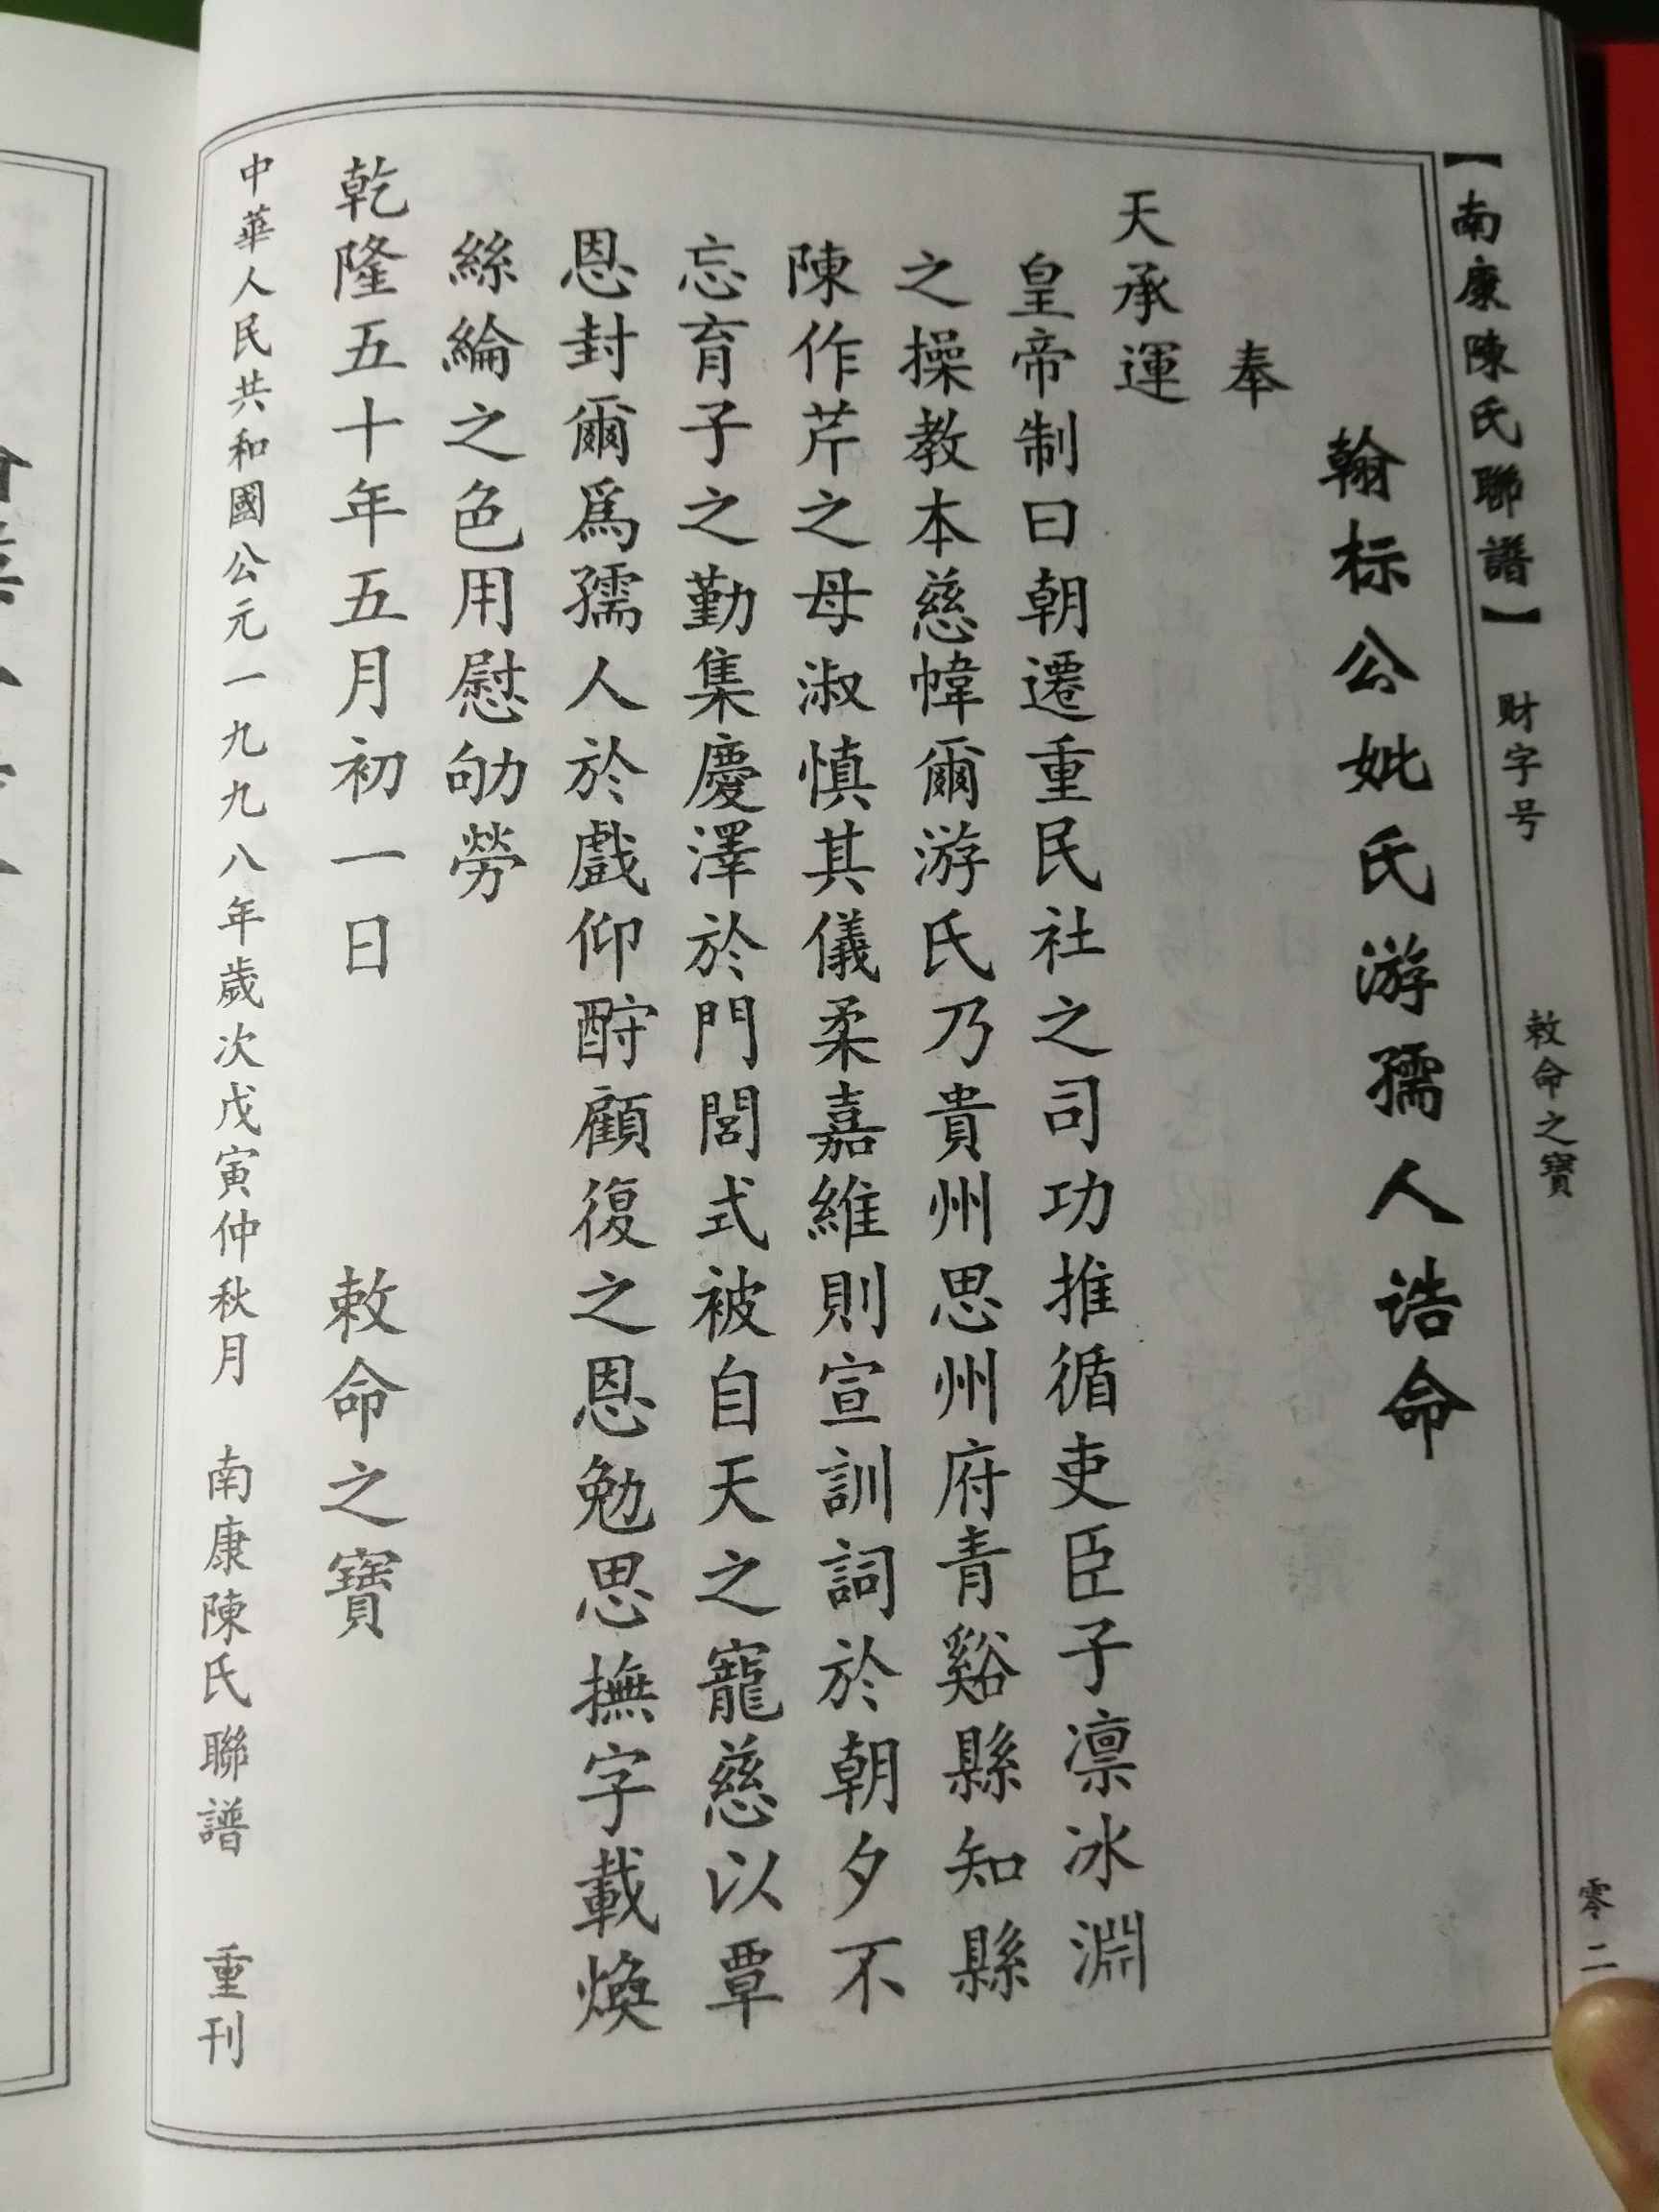 【南康陳氏聯譜】 财字号 敕命之寶 零二
翰标公妣氏游孺人诰命
奉
天承運
皇帝制曰朝遷重民社之司功推循吏臣子凛冰淵
之操教本慈幃爾游氏乃貴州思州府青谿縣知縣
陳作芹之母淑慎其儀柔嘉維則宣訓詞於朝夕不
忘育子之勤集慶澤於門閭式被自天之寵慈以覃
恩封爾爲孺人於戲仰酧顧復之恩勉思撫字載焕
絲綸之色用慰劬勞
乾隆五十年五月初一日 敕命之寶
中華人民共和國公元一九九八年歲次戊寅仲秋月 南康陳氏聯譜 重刊